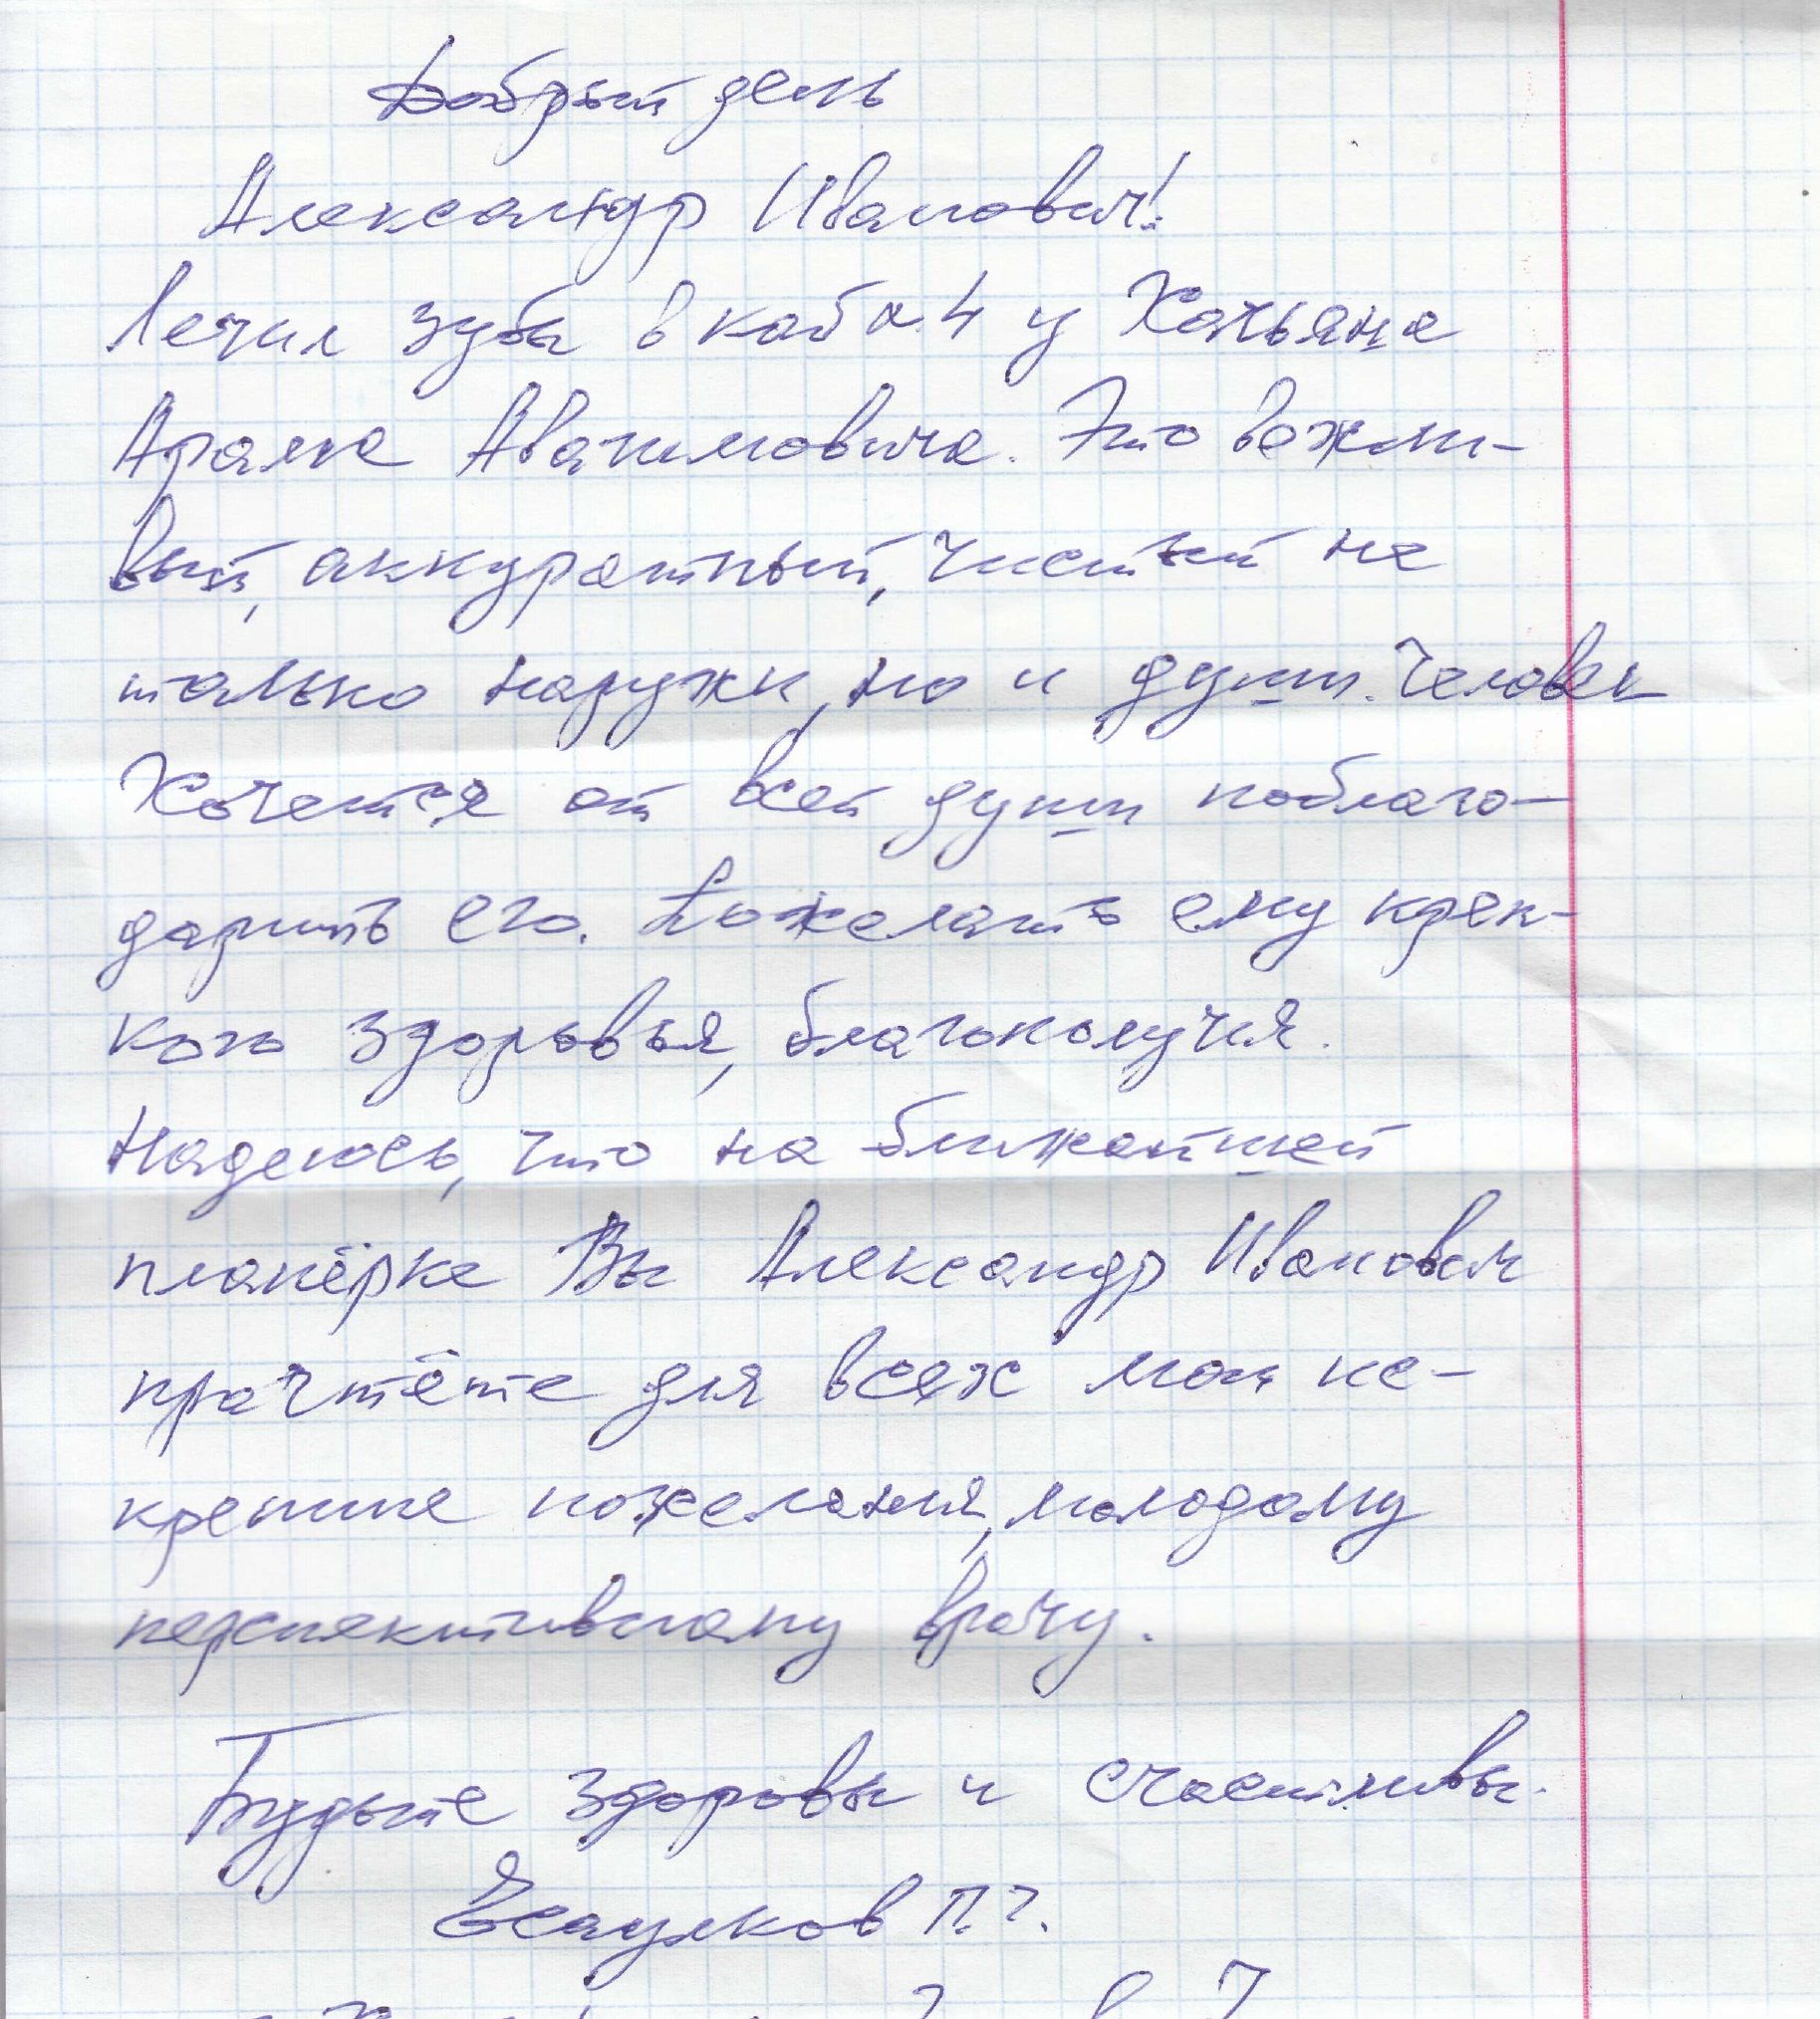 Добрый день
Александр Иванович!
Лечил зубы в каб н.4 у Хачьяна
Арама Авакимовича. Это вежли-
вый, аккуратный, чистый не
только наружи, но и души. Человек
Хочется от всей души поблаго-
дарить его. Пожелать ему креп-
кого здоровья, благополучия.
Надеюсь, что на ближайшей
планёрке Вы Александр Иванович
прачтёте для всех мои ис-
кренние пожелания, молодому
перспективному врачу.
Будьте здоровы и счастливы.
Есаулков П.Г.